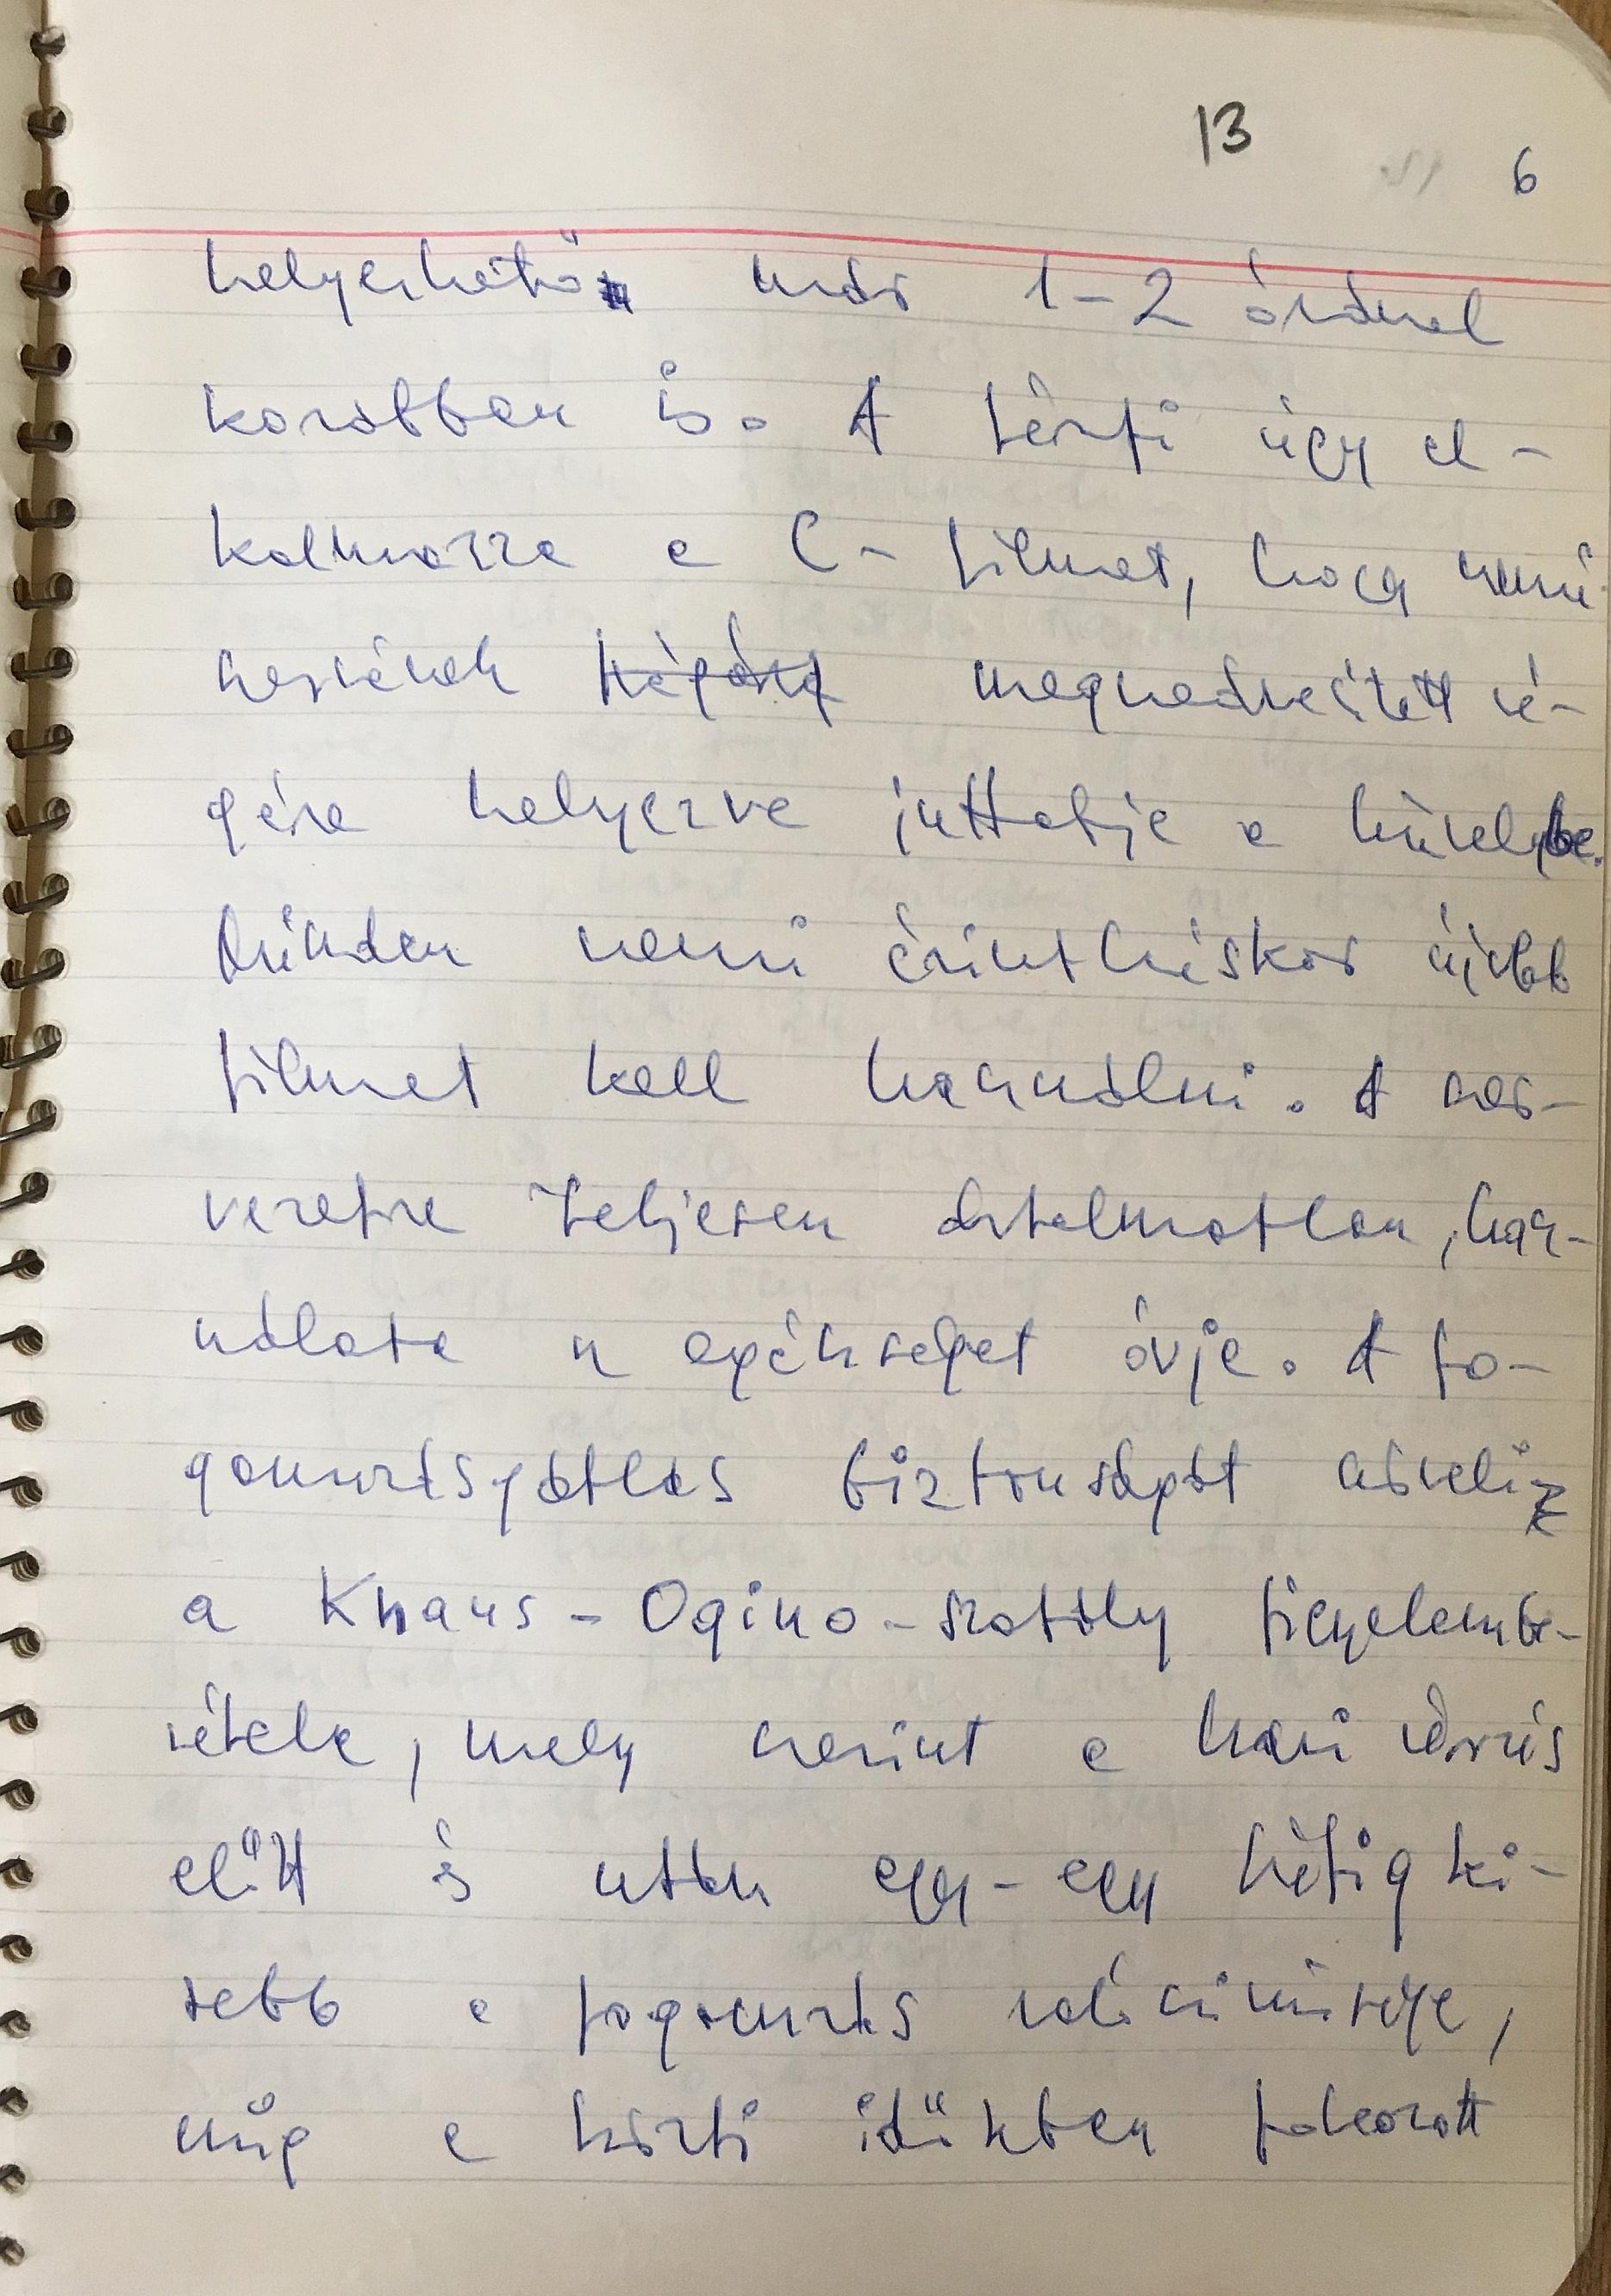 13
6
helyezhető már 1-2 órával
korábban is. A férfi úgy al-
kalmazza a C-filmet, hogy nemi
szervének megnedvesített vé-
gére helyezve juttatja a hüvelybe.
Minden nemi érintkezéskor újabb
filmet kell használni. A szer-
vezetre teljesen ártalmatlan, hasz-
nálata az egészséget óvja. A fo-
gamzásgátlás biztonságát növeli
a Knaus-Ogino-szabály figyelembe-
vétele, mely szerint a havi vérzés
előtt és után egy-egy hétig ki-
sebb a fogamzás valószínűsége,
míg a közti időkben fokozott